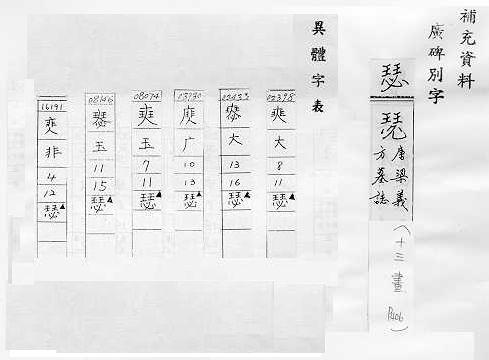 補充資料
廣碑別字
瑟
瑟 唐梁義
方墓誌
(十三畫 P406)
異體字表
02398 爽 大 8 11 瑟▲
02433 大 13 16 瑟▲
13930 广 10 13 瑟▲
08074 玉 7 11 瑟▲
08146 玉 11 15 瑟▲
16191 非 4 12 瑟▲